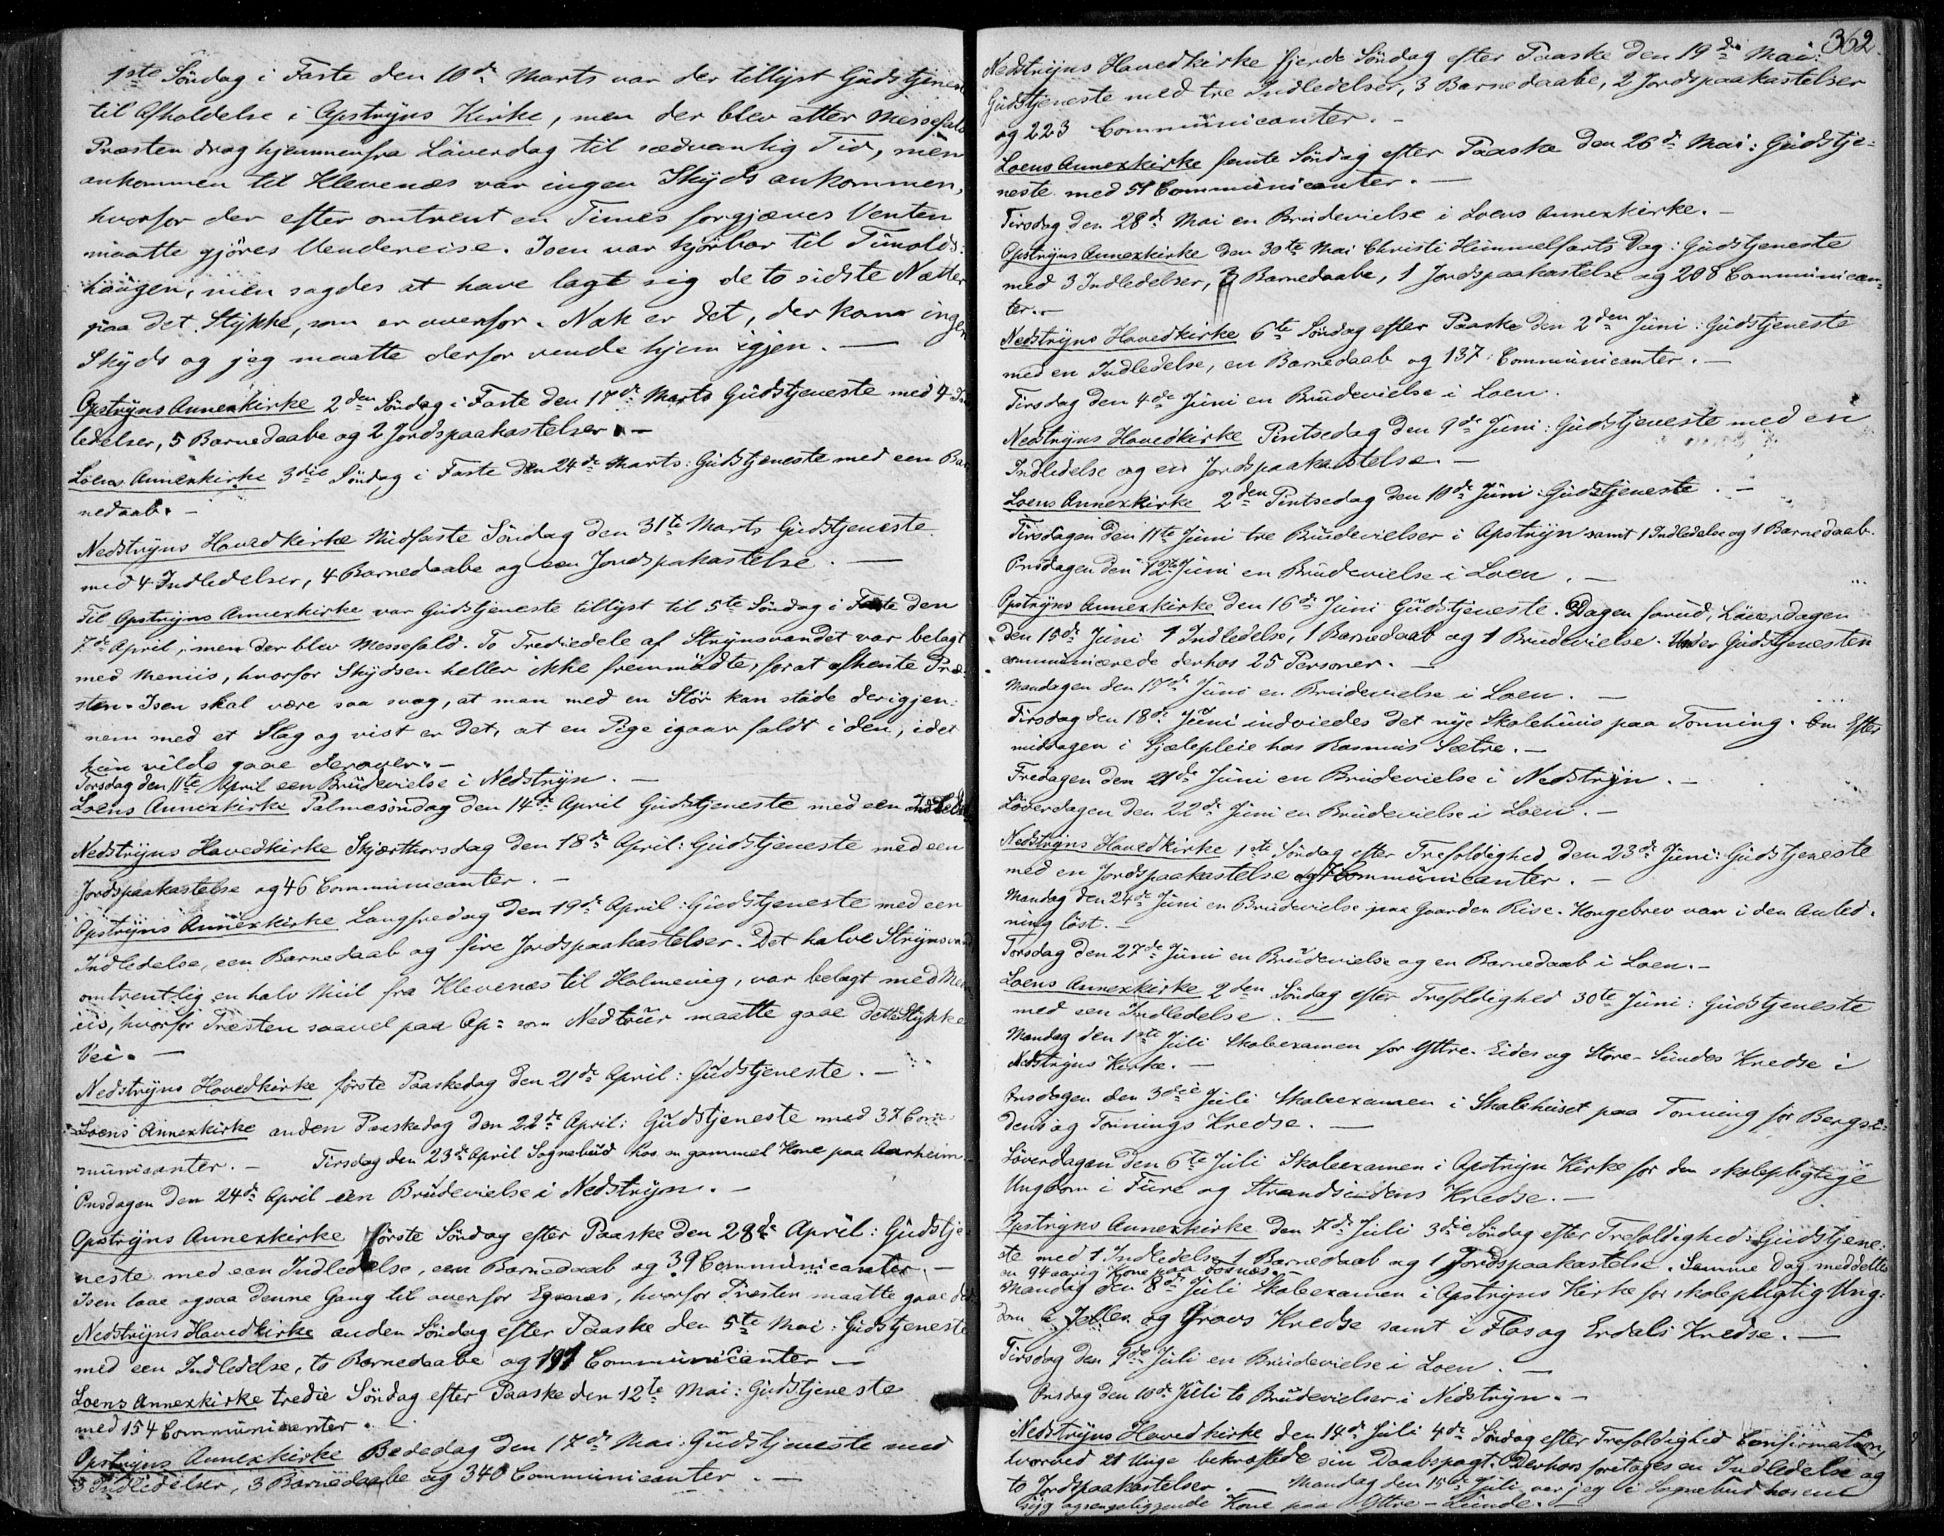 1ste Söndag i Faste den 10de Marts var der tillyst Gudstjenes
til Afholdelse i Opstryns Kirke, men der blev atter Messefald
Præsten drog hjemmenfra Löverdag til sædvanlig Tid, men
ankommen til Klevenæs var ingen Skyds ankommen,
hvorfor der efter omtrent en Times forgjæves Venten
maatte gjöres Vendereise. Isen var kjörbar til
haugen, men sagdes at have lagt sig de to sidste Nætter
paa det Stykke, som er ovenfor. Nok er det, der kom ingen
Skyds og jeg maatte derfor vende hjem igjen. —
Opstryns Annexkirke 2den Söndag i Faste den 17de Marts Gudstjeneste med 4 Ind
ledelser, 5 Barnedaabe og 2 Jordspaakastelser. —
Loens Annexkirke 3die Söndag i Faste den 24de Marts: Gudstjeneste med een Bar
nedaab. —
Nedstryns Hovedkirke Midfaste Söndag den 31te Marts Gudstjeneste
med 4 Indledelser, 4 Barnedaabe og een Jordspakastelse. —
Til Opstryns Annexkirke var Gudstjeneste tillyst til 5te Söndag i Faste den
7de April, men der blev Messefald. To Trediedele af Strynsvandet var belagt
med Meniis, hvorfor Skydsen heller ikke fremmödte, forat afhente Præ
sten. Isen skal være saa svag, at man med en Stör kan stöde derigjen:
nem med et Slag og vist er det, at en Pige igaar faldt i den, idet
hun vilde gaae derover. —
Torsdag den 11te April een Brudevielse i Nedstryn. —
Loens Annexkirke Palmesöndag den 14de April Gudstjeneste med een Indledel
Nedstryns Hovedkirke Skjærthorsdag den 18de April: Gudstjeneste med een
Jordspaakastelse og 46 Communicanter. —
Opstryns Annexkirke Langfredag den 19de April: Gudstjeneste med een
Indledelse, een Barnedaab og fire Jordspaakastelser. Det halve Strynsvand
omtrentlig en halv Miil fra Klevenæs til Holmevig, var belagt med Men
iis, hvorfor Præsten saavel paa Op= som Nedtour maatte gaae dette Stykke
Vei. —
Nedstryns Hovedkirke förste Paaskedag den 21de April: Gudstjeneste. —
Loens Annexkirke anden Paaskedag den 22de April: Gudstjeneste med 37 Com
municanter. — Tirsdag den 23de April Sognebud hos en gammel Kone paa Aarheim
Onsdagen den 24de April een Brudevielse i Nedstryn. —
Opstryns Annexkirke förste Söndag efter Paaske den 28de April: Gudstje
neste med een Indledelse, een Barnedaab og 39 Communicanter. —
Isen laae ogsaa denne Gang til ovenfor Egenæs, hvorfor Præsten maatte gaae
Nedstryns Hovedkirke anden Söndag efter Paaske den 5te Mai: Gudstjeneste
med een Indledelse, to Barnedaabe og Communicanter —
Loens Annexkirke tredie Söndag efter Paaske den 12te Mai: Gudstjeneste
med 154 Communicanter.
Opstryns Annexkirke Bededag den 17de Mai: Gudstjeneste med
3 Indledelser, 3 Barnedaabe og 340 Communicanter. —
362.
Nedstryns Hovedkirke fjerde Söndag efter Paaske den 19de Mai:
Gudstjeneste med tre Indledelser, 3 Barnedaabe, 2 Jordspaakastelser
og 223 Communicanter. —
Loens Annexkirke femte Söndag efter Paaske den 26de Mai: Gudstje=
neste med 51 Communicanter. —
Tirsdag den 28de Mai en Brudevielse i Loens Annexkirke. —
Opstryns Annexkirke den 30te Mai Christi Himmelfarts Dag: Gudstjeneste
med 3 Indledelser, Barnedaabe, 1 Jordspaakastelse og 208 Communican=
ter. —
Nedstryns Hovedkirke 6te Söndag efter Paaske den 2den Juni: Gudstjeneste
med en Indledelse, en Barnedaab og 137 Communicanter. —
Tirsdag den 4de Juni en Brudevielse i Loen.
Nedstryns Hovedkirke Pintsedag den 9de Juni: Gudstjeneste med en
Indledelse og en Jordspaakastelse. —
Loens Annexkirke 2den Pintsedag den 10de Juni: Gudstjeneste. —
Tirsdagen den 11te Juni tre Brudevielser i Opstryn samt 1 Indledelse og 1 Barnedaab.
Onsdagen den 12te Juni en Brudevielse i Loen. —
Opstryns Annexkirke den 16de Juni Gudstjeneste. Dagen forud, Löverdagen
den 15de Juni 1 Indledelse, 1 Barnedaab og 1 Brudevielse. Under Gudstjenesten
communicerede derhos 25 Personer. —
Mandagen den 17de Juni en Brudevielse i Loen. —
Tirsdag den 18de Juni indviedes det nye Skolehuus paa Tonning. Om Efter
middagen i Sjælepleie hos Rasmus Sætre. —
Fredagen den 21de Juni en Brudevielse i Nedstryn. —
Löverdagen den 22de Juni en Brudevielse i Loen. —
Nedstryns Hovedkirke 1ste Söndag efter Trefoldighed den 23de Juni: Gudstjeneste
med en Jordspaakastelse og Communicanter. —
Mandag den 24de Juni en Brudevielse paa Gaarden Rise. Kongebrev var i den Anled=
ning löst. —
Torsdag den 27de Juni en Brudevielse og en Barnedaab i Loen. —
Loens Annexkirke 2den Söndag efter Trefoldighed 30te Juni: Gudstjeneste
med een Indledelse. —
Mandag den 1ste Juli Skoleexamen for Yttre-Eides og Store-Sundes Kredse i
Nedstryns Kirke. —
Onsdagen den 3die Juli Skoleexamen i Skolehuset paa Tonning for
dens og Tonnings Kredse. —
Löverdagen den 6te Juli Skoleexamen i Opstryn Kirke for den skolepligtige
Ungdom i Fure og Strandsidens Kredse. —
Opstryns Annexkirke den 7de Juli 3die Söndag efter Trefoldighed: Gudstjene=
ste med 1 Indledelse, 1 Barnedaab og 1 Jordspaakastelse. Samme Dag meddeltes
en 94 aarig Kone paa
Mandag den 8de Juli Skoleexamen i Opstryns Kirke for skolepligtig Ung=
dom i Hjelle og Grovs Kredse samt i Flo og Erdals Kredse. —
Tirsdag den 9de Juli en Brudevielse i Loen. —
Onsdag den 10de Juli to Brudevielser i Nedstryn. —
Nedstryns Hovedkirke den 14de Juli 4de Söndag efter Trefoldighed Confirmation,
hvorved 21 Unge bekræftede sin Daabspagt. Derhos foretoges en Indledelse og
to Jordspaakastelser. — Mandag den 15de Juli var jeg i Sognebud hos en
syg og sengeliggende Kone paa Yttre-Sunde. —